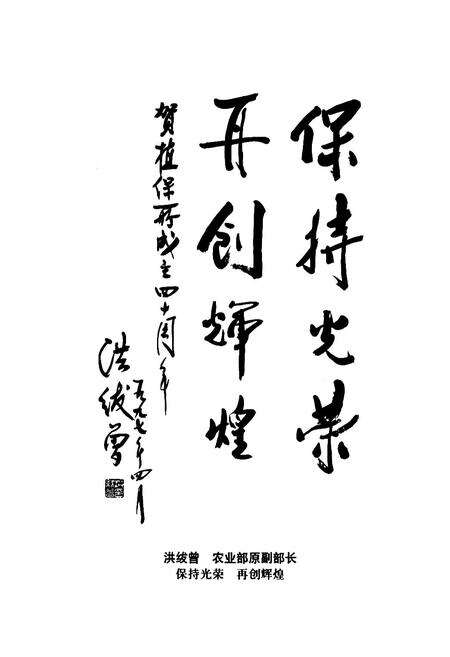 保持光荣
再创辉煌
贺植保所成立四十周年
洪绂曾
一九九七年四月
洪绂曾 农业部原副部长
保持光荣 再创辉煌